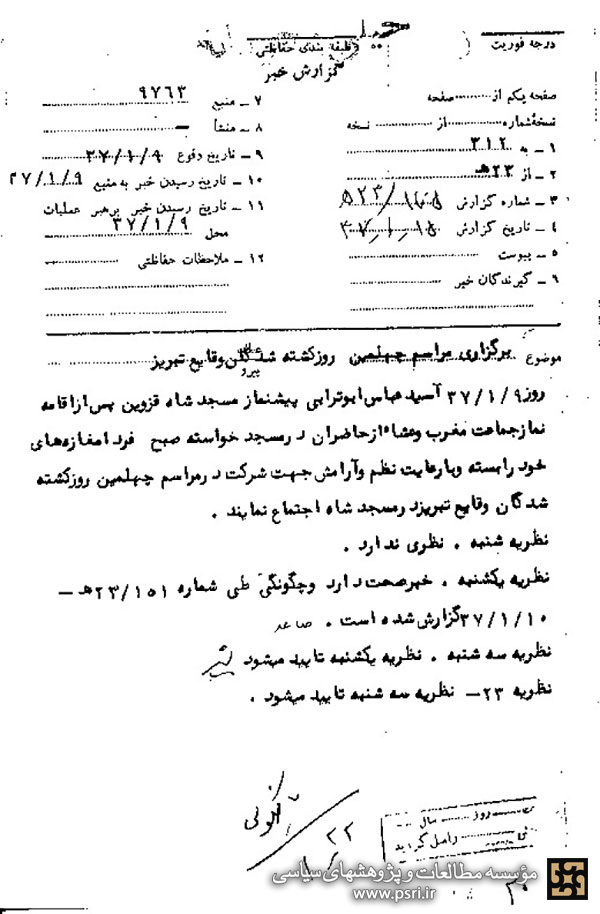 درجه فوریت
طبقه بندی حفاظتی
گزارش خبر
صفحه یکم از صفحه
نسخهٔ شماره از نسخه
۱ ـ به ۳۱۲
۲ ـ از ۲۳ هـ
۳ ـ شماره گزارش
۴ ـ تاریخ گزارش
۵ ـ پیوست
۶ ـ گیرندگان خبر
۷ ـ منبع ۹۷۶۳
۸ ـ منشأ ـ
۹ ـ تاریخ وقوع ۳۷/۱/۹
۱۰ ـ تاریخ رسیدن خبر به منبع ۳۷/۱/۹
۱۱ ـ تاریخ رسیدن خبر برهبر عملیات
محل ۳۷/۱/۹
۱۲ ـ ملاحظات حفاظتی
موضوع برگزاری مراسم چهلمین روز کشته شدگان وقایع تبریز
پیرو
روز ۳۷/۱/۹ آسید عباس ابوترابی پیشنماز مسجد شاه قزوین پس از اقامه
نماز جماعت مغرب و عشاء از حاضران در مسجد خواسته صبح فردا مغازه‌های
خود را بسته و با رعایت نظم و آرامش جهت شرکت در مراسم چهلمین روز کشته
شدگان وقایع تبریز در مسجد شاه اجتماع نمایند .
نظریه شنبه . نظری ندارد .
نظریه یکشنبه . خبر صحت دارد و چگونگی طی شماره ۲۳/۱۵۱ هـ ـ
۳۷/۱/۱۰ گزارش شده است . صاعد
نظریه سه شنبه . نظریه یکشنبه تایید میشود
نظریه ۲۳ ـ نظریه سه شنبه تایید میشود .
روز سال
مؤسسه مطالعات و پژوهشهای سیاسی
www.psri.ir